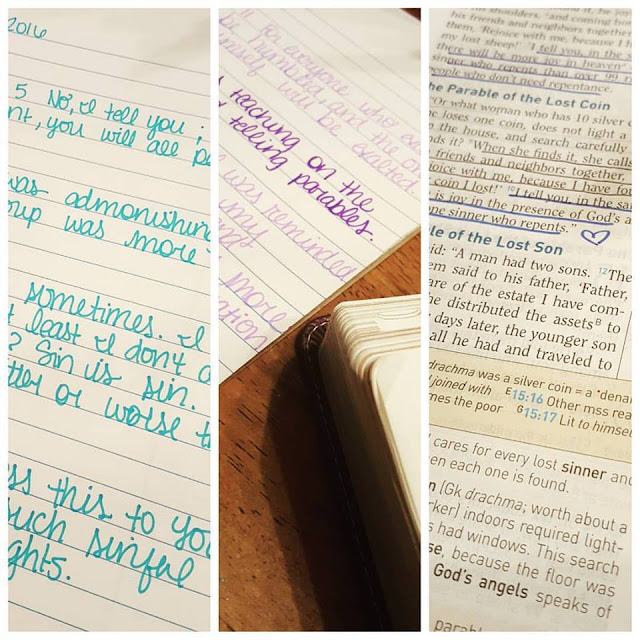 2016
5 No, I tell you;
you will all
was admonishing
was more
sometimes. I
least I don't
? Sin is sin.
or worse
this to you
such sinful
for everyone who
himself will be exalted
teaching on the
telling parables.
was reminded
my
more
his shoulders, and coming home
his friends and neighbors together
'Rejoice with me, because I
my lost sheep!' I tell you, in the
there will be more joy in heaven
sinner who repents than over 99
people who don't need repentance.
The Parable of the Lost Coin
"Or what woman who has 10 silver
she loses one coin, does not light a
the house, and search carefully
finds it? When she finds it, she calls
friends and neighbors together,
me, because I have
coin I lost!' 10 I tell you, in the
is joy in the presence of God's
one sinner who repents."
of the Lost Son
"A man had two sons. 12 The
them said to his father, 'Father,
share of the estate I have com-
he distributed the assets B to
days later, the younger son
all he had and traveled to
drachma was a silver coin = a
joined with E 15:16 Other mss
the poor G 15:17 Lit to himself
cares for every lost sinner and
when each one is found.
(Gk drachma; worth about a
indoors required light-
had windows. This search
because the floor was
God's angels speaks of